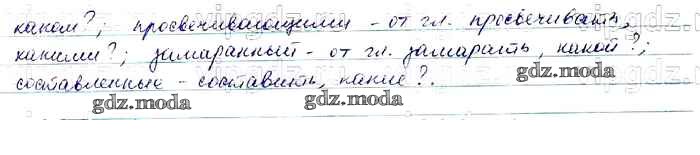 каком?; просвечивающими - от гл. просвечивать,
какими?; замаранный - от гл. замарать, какой?;
составленные - составить, какие?.
gdz.moda gdz.moda gdz.moda